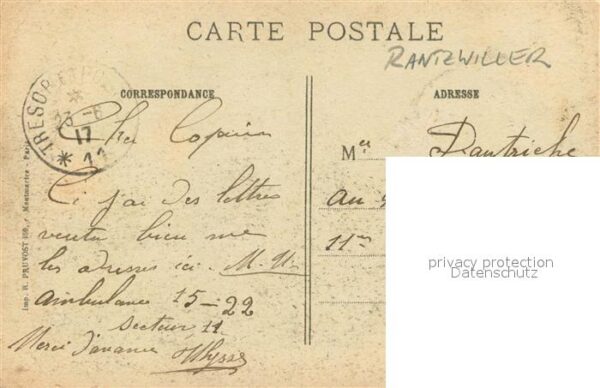 CARTE POSTALE
RANTZWILLER
CORRESPONDANCE
ADRESSE
TRESOR ET POSTES
23 -6
17
* 11 *
Cher Copain
Si j'ai des lettres
veuta bien me
les adresses ici. M. U.
ambulance 15-22
Secteur 11
Merci d'avance Ulysse
Mer Dautriche
au 4
11em
privacy protection
Datenschutz
Imp. H. PRUVOST 159, r Montmartre - Paris